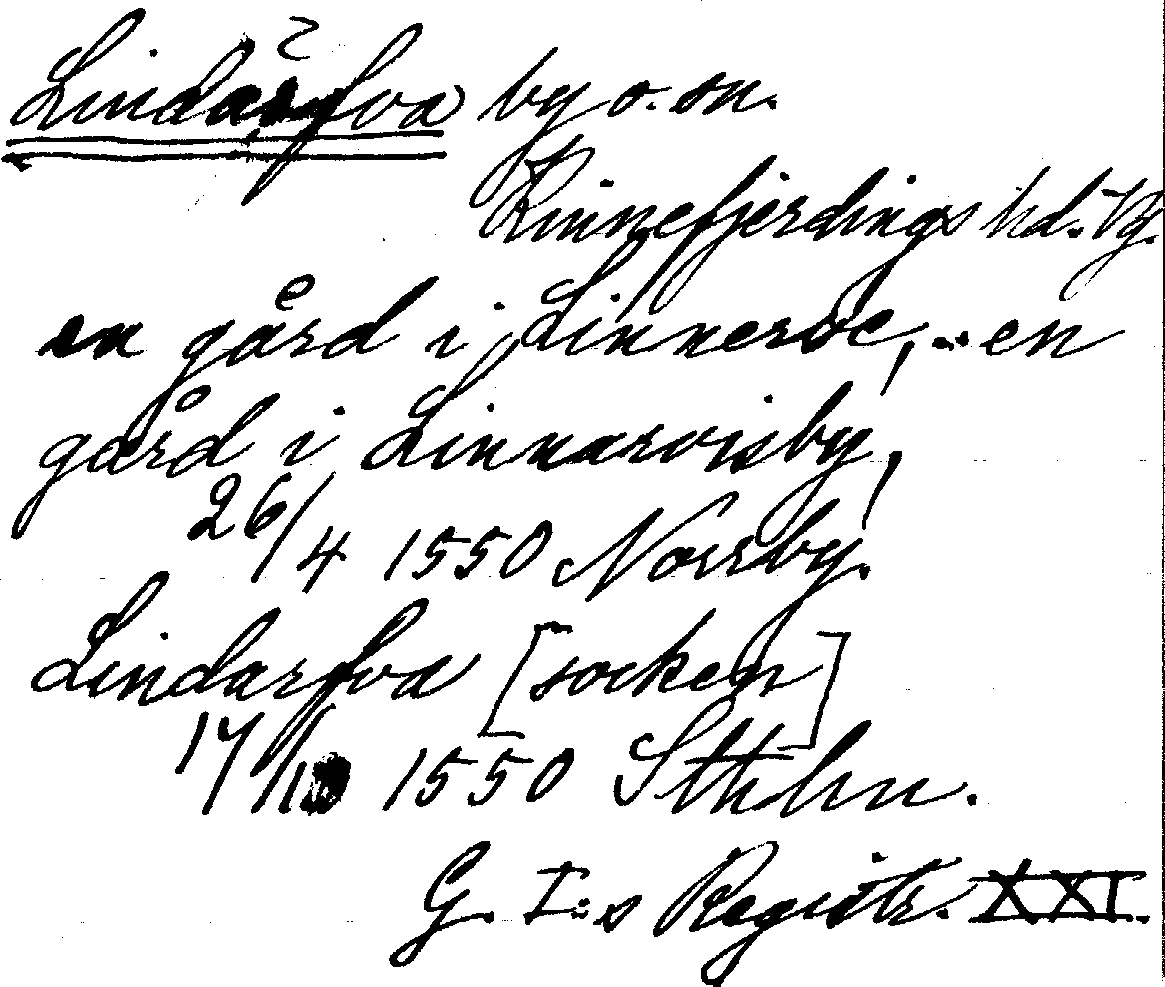 Lindärfva by o. sn.
Kinnefjerdings hd. Vg.
en gård i Linneroe, .. en
gård i Linnarvisby,
26/4 1550 Norrby.
Lindarfva [socken]
17/1 1550 Sthlm.
G. I:s Registr. XXI.